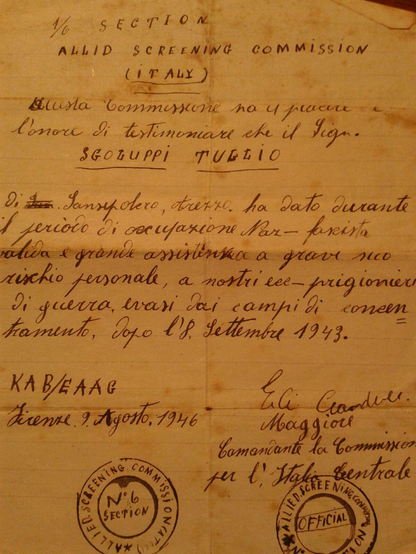 1/6 SECTION
ALLID SCREENING COMMISSION
(ITALY)
Questa Commissione ha il piacere e
l'onore di testimoniare che il Sign.
SGOLUPPI TULLIO
Di Sansepolcro, Arezzo. ha dato durante
il periodo di occupazione Naz- fascista
valida e grande assistenza a grave suo
rischio personale, a nostri ex- prigionieri
di guerra, evasi dai campi di concen
tramento, dopo l'8. Settembre 1943.
KAB/EAAG
Firenze. 9. Agosto. 1946
Maggiore
Comandante la Commission
per l'Italia Centrale
ALLIED SCREENING COMMISSION (ITALY)
No. 6
SECTION
ALLIED SCREENING COMMISSION
OFFICIAL